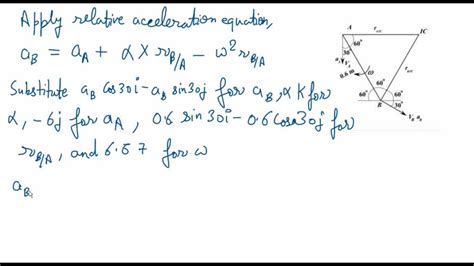 Apply relative acceleration equation,
a_B = a_A + α × r_B/A − ω² r_B/A
Substitute a_B cos30i − a_B sin30j for a_B, αK for
α, −6j for a_A, 0.6 sin30i − 0.6 cos30j for
r_B/A, and 6.57 for ω
a_B
A
r_A/IC
IC
60°
30°
0.6 m
ω
r_B/IC
60°
60°
60°
B
30°
V_B a_B